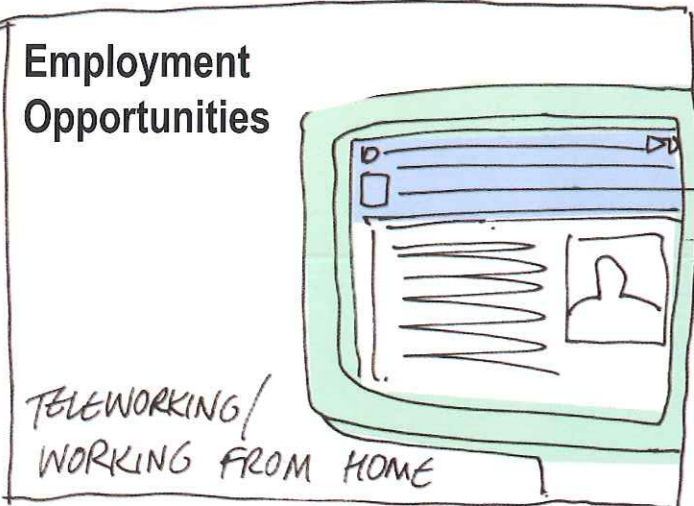 Employment
Opportunities
TELEWORKING/
WORKING FROM HOME